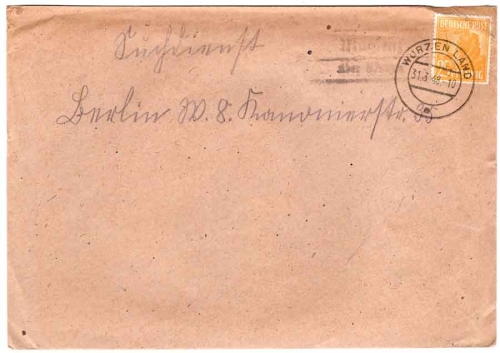 Suchdienst
Berlin W. 8. Kanonierstr. 35
DEUTSCHE POST
25
WURZEN LAND
31.3.48.-10